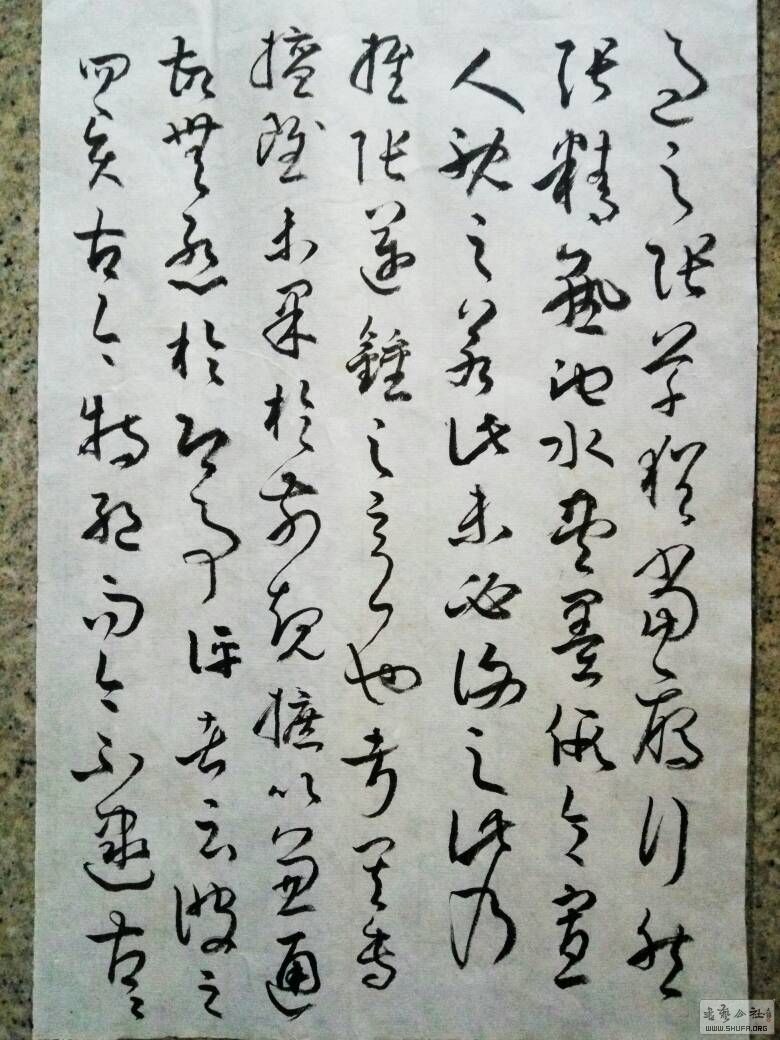 過之張草猶當雁行然
張精熟池水盡墨假令寡
人耽之若此未必謝之此乃
推張邁鍾之意也考其專
擅雖未果於前規摭以兼通
故無慙於即事評者云彼之
四賢古今特絕而今不逮古〻
書藝公社
WWW.SHUFA.ORG